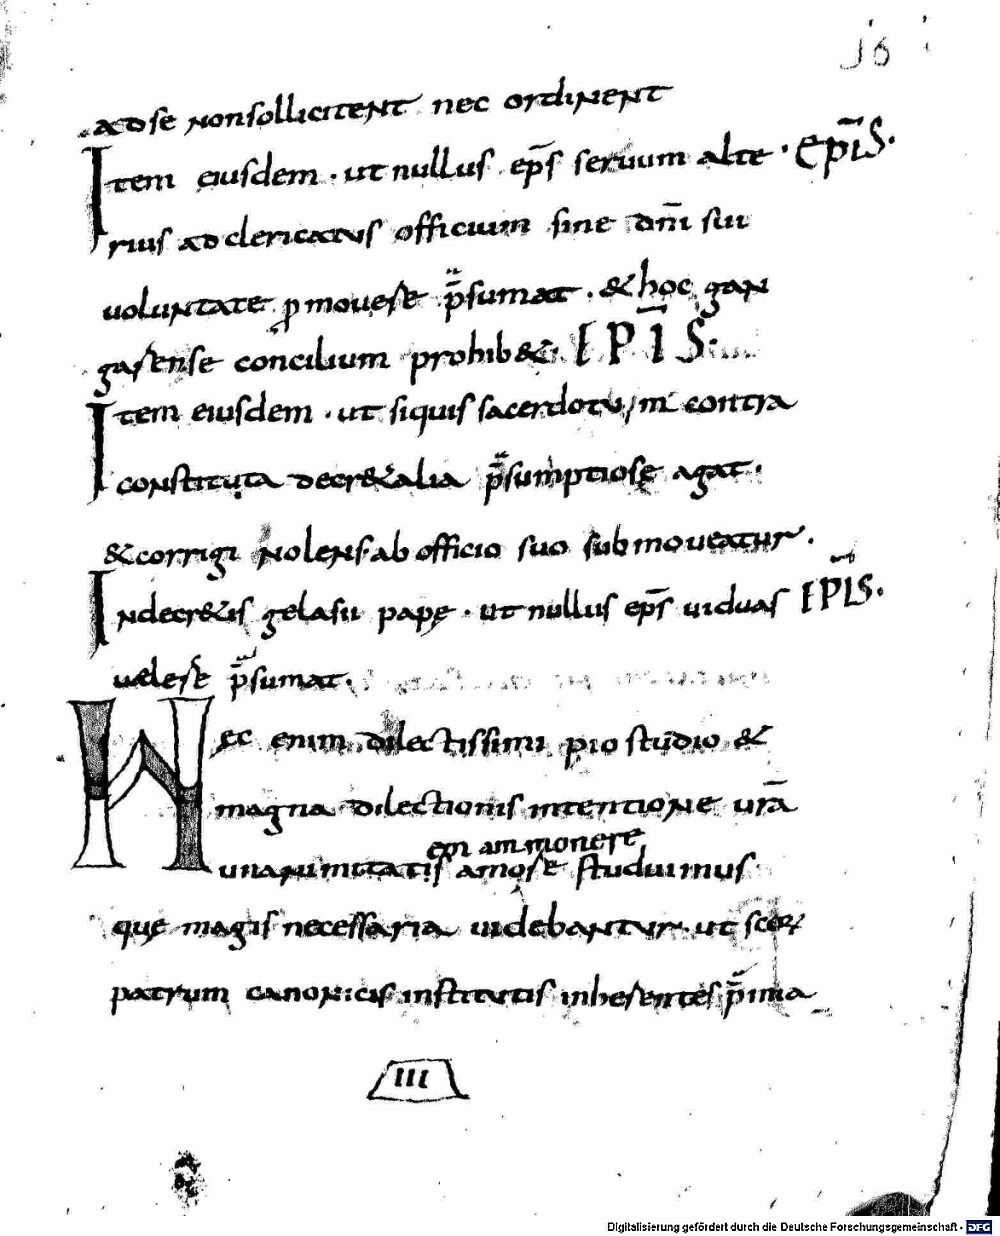 16
ad se non sollicitent nec ordinent
Item eiusdem · ut nullus ep̄s seruum alte · EPĪS·
rius ad clericatus officium sine dn̄i sui
uoluntate promouere p̄sumat · & hoc gan
garense concilium prohib& · EPĪS·
Item eiusdem · ut siquis sacerdotum contra
constituta decr&alia p̄sumptiose agat ·
& corrigi nolens ab officio suo submoueatur ·
In decr&is gelasii papę · ut nullus ep̄s uiduas EPĪS·
uelare p̄sumat ·
Hęc enim dilectissimi pio studio &
magna dilectionis intentione ur̄a
ammonere
unanimitatis amore studuimus
quę magis necessaria uidebantur · ut scōrum
patrum canonicis institutis inherentes p̄ima
III
Digitalisierung gefördert durch die Deutsche Forschungsgemeinschaft - DFG